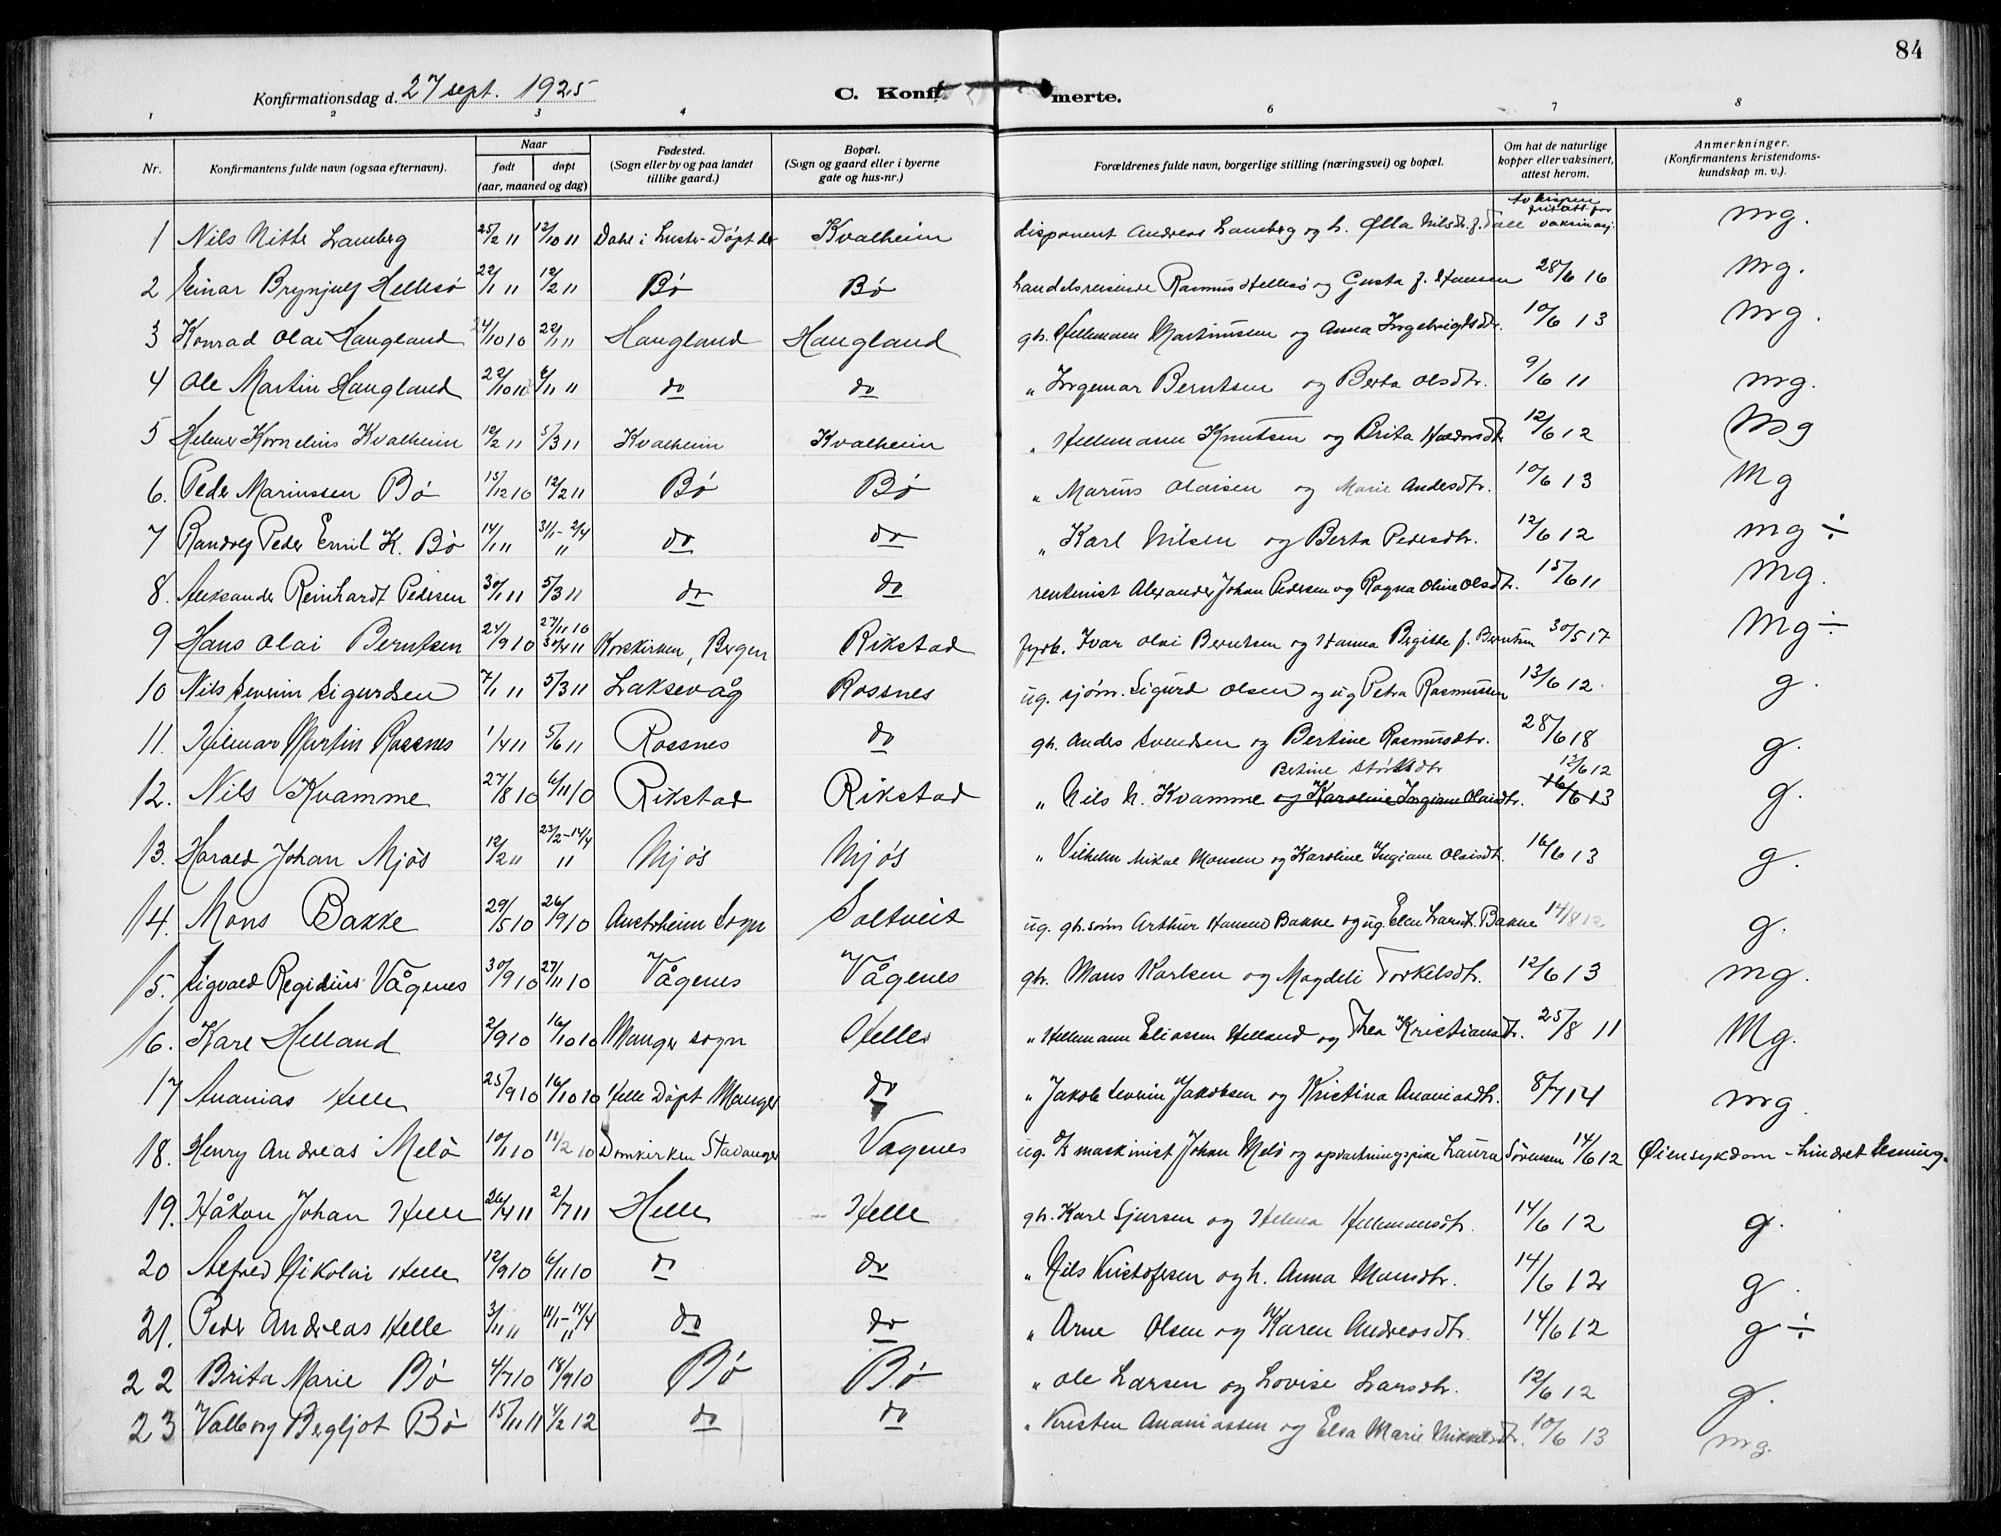 84
Konfirmationsdag d. 27 sept. 1925
C. Konfi merte.
1 2 3 4 5 6 7 8
Nr. Konfirmantens fulde navn (ogsaa efternavn). Naar født døpt (aar, maaned og dag) Fødested. (Sogn eller by og paa landet tillike gaard.) Bopæl. (Sogn og gaard eller i byerne gate og hus-nr.) Forældrenes fulde navn, borgerlige stilling (næringsvei) og bopæl. Om hat de naturlige kopper eller vaksinert, attest herom. Anmerkninger. (Konfirmantens kristendoms-kundskap m. v.).
1 Nils Nitter Lamberg 25/2 11 12/10 11 Dale i Luster Døpt der Kvalheim disponent Andreas Lamberg og h. Olla Nilsdtr. f. Dale mg.
2 Einar Brynjulf Hellesø 22/1 11 12/2 11 Bø Bø Handelsreisende Rasmus Hellesø og Gusta f. Hansen 28/6 16 mg.
3 Konrad Olai Haugland 24/10 10 22/1 11 Haugland Haugland gbr. Hellemann Martinussen og Anna Ingebrigtsdtr. 10/6 13 mg.
4 Ole Martin Haugland 22/10 10 6/11 11 do do " Ingemar Berntsen og Berta Olsdtr. 9/6 11 mg.
5 Helmer Kornelius Kvalheim 12/2 11 5/3 11 Kvalheim Kvalheim " Hellemann Knutsen og Brita Haldorsdtr 12/6 12 Mg
6. Peder Marinssen Bø 15/12 10 12/2 11 Bø Bø " Marius Olaisen og Marie Andersdtr. 10/6 13 Mg
7 Randvej Peder Emil K. Bø 14/1 11 31/1 - 2/4 11 do do " Karl Nilsen og Berta Pedersdtr. 12/6 12 mg ÷
8. Aleksander Reinhardt Pedersen 30/1 11 5/3 11 do do rentenist Alexander Johan Pedersen og Ragna Oline Olsdtr. 15/6 11 Mg.
9 Hans Olai Berntsen 24/9 10 27/11 10 30/4 11 Korskirken, Bergen Rikstad fyrb. Ivar Olai Berntsen og Hanna Birgitte f. Berntsen 30/5 17 Mg ÷
10 Nils Severin Sigurdsen 7/1 11 5/3 11 Laksevåg Rossnes ug. sjøm. Sigurd Olsen og ug Petra Rasmussen 13/6 12. g.
11. Hilmar Martin Rossnes 1/4 11 5/6 11 Rossnes do gbr. Anders Svendsen og Bertine Rasmusdtr. 28/6 18 g.
12. Nils Kvamme 27/8 10 6/11 10 Rikstad Rikstad " Nils N. Kvamme og Karoline Ingiane Olaisdtr. Betine Størksdtr 12/6 12 16/6 13 g.
13. Harald Johan Mjøs 12/2 11 23/2 - 14/4 11 Mjøs Mjøs " Vilhelm Mikal Monsen og Karoline Ingiane Olaisdtr. 16/6 13 g.
14. Mons Bakke 29/5 10 26/9 10 Austrheim Sogn Soltveit ug. gbr.søns Arthur Hansen Bakke og ug. Elen Larsdtr. Bakke 14/8 12 g.
15. Sigvald Regidius Vågenes 30/9 10 27/11 10 Vågenes Vågenes gbr. Mons Karlsen og Magdeli Torkelsdtr. 12/6 13 mg.
16. Kåre Helland 2/9 10 16/10 10 Manger sogn Helle " Hellemann Eliassen Helland og Thea Kristiansdtr. 25/8 11 Mg.
17 Ananias Helle 25/9 10 16/10 10 Helle Døpt Manger do " Jakob Severin Jakobsen og Kristina Ananiasdtr. 8/7 14 mg.
18. Henry Andreas Melø 10/1 10 11/2 10 Domkirken Stavanger Vågenes ug. maskinist Johan Melø og opvartningspike Laura Sørensen 14/6 12 Øiensykdom - hindret lesning.
19. Håkon Johan Helle 26/4 11 2/7 11 Helle Helle gbr. Karl Sjursen og Helena Hellemansdtr. 14/6 12 g.
20 Alfred Nikolai Helle 12/9 10 6/11 10 do do " Nils Kristofersen og h. Anna Monsdtr. 14/6 12 g.
21. Peder Andreas Helle 3/11 11 11/1 - 14/4 11 do do " Arne Olsen og Karen Andreasdtr. 14/6 12 g ÷
22 Brita Marie Bø 4/7 10 18/9 10 Bø Bø " Ole Larsen og Lovise Larsdtr. 12/6 12 g.
23 Valborg Bergljot Bø 15/11 11 4/2 12 do do " Kristen Ananiassen og Elsa Marie Mikkelsdtr. 10/6 13 mg.